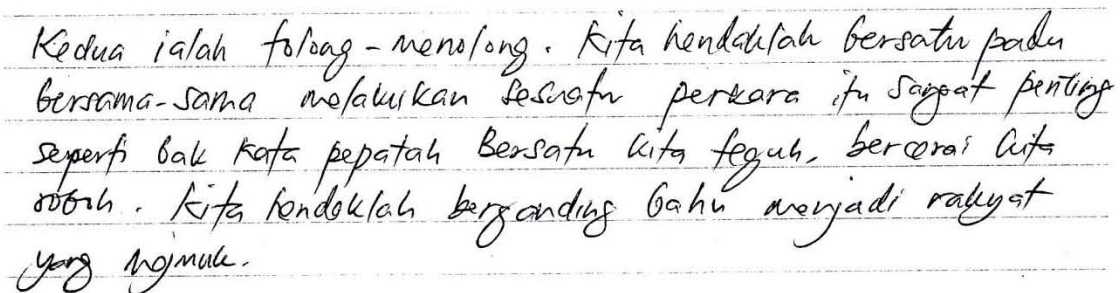 Kedua ialah tolong-menolong. Kita hendaklah bersatu padu
bersama-sama melakukan sesuatu perkara itu sangat penting
seperti bak kata pepatah Bersatu kita teguh, bercerai kita
roboh. Kita hendaklah berganding bahu menjadi rakyat
yang